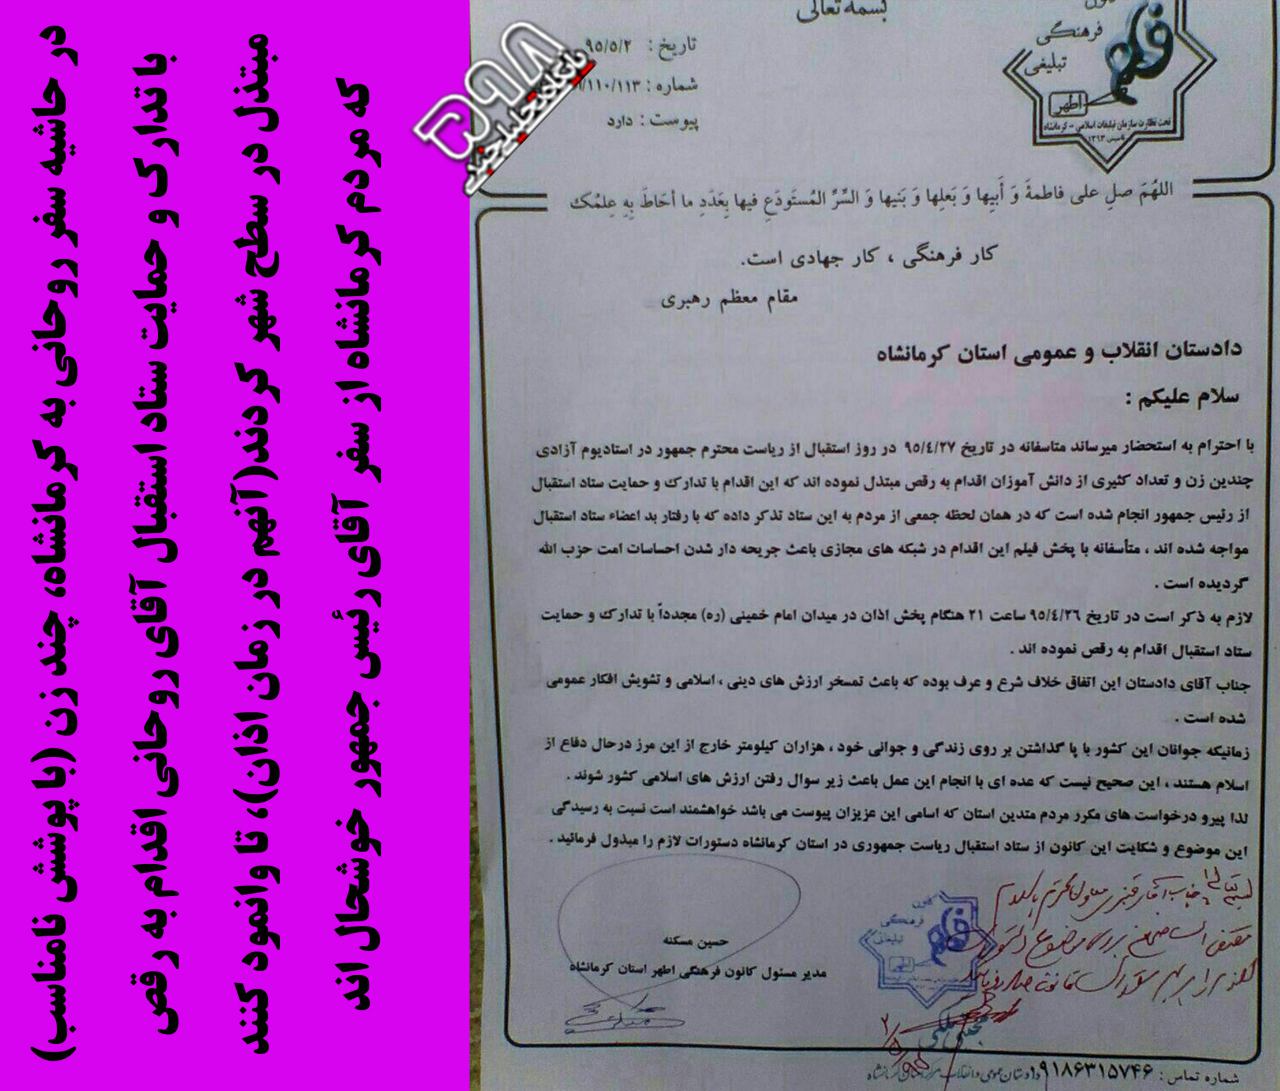 بسمه تعالی
تاریخ : ۹۵/۵/۲
شماره : /۱۱۰/۱۱۳
پیوست : دارد
فرهنگی
تبلیغی
قلم
اطهر
تحت نظارت سازمان تبلیغات اسلامی - کرمانشاه
تاسیس ۱۳۹۳
۵۹۸
پایگاه تحلیلی خبری
اللهُمَ صلِ علی فاطمةَ وَ أبیها وَ بَعلِها وَ بَنیها وَ السِّرِّ المُستَودَعِ فیها بِعَدَدِ ما أحَاطَ بِهِ عِلمُکَ
کار فرهنگی ، کار جهادی است.
مقام معظم رهبری
دادستان انقلاب و عمومی استان کرمانشاه
سلام علیکم :
با احترام به استحضار میرساند متاسفانه در تاریخ ۹۵/٤/۲۷ در روز استقبال از ریاست محترم جمهور در استادیوم آزادی
چندین زن و تعداد کثیری از دانش آموزان اقدام به رقص مبتذل نموده اند که این اقدام با تدارک و حمایت ستاد استقبال
از رئیس جمهور انجام شده است که در همان لحظه جمعی از مردم به این ستاد تذکر داده که با رفتار بد اعضاء ستاد استقبال
مواجه شده اند ، متأسفانه با پخش فیلم این اقدام در شبکه های مجازی باعث جریحه دار شدن احساسات امت حزب الله
گردیده است .
لازم به ذکر است در تاریخ ۹۵/٤/۲٦ ساعت ۲۱ هنگام پخش اذان در میدان امام خمینی (ره) مجدداً با تدارک و حمایت
ستاد استقبال اقدام به رقص نموده اند .
جناب آقای دادستان این اتفاق خلاف شرع و عرف بوده که باعث تمسخر ارزش های دینی ، اسلامی و تشویش افکار عمومی
شده است .
زمانیکه جوانان این کشور با پا گذاشتن بر روی زندگی و جوانی خود ، هزاران کیلومتر خارج از این مرز درحال دفاع از
اسلام هستند ، این صحیح نیست که عده ای با انجام این عمل باعث زیر سوال رفتن ارزش های اسلامی کشور شوند .
لذا پیرو درخواست های مکرر مردم متدین استان که اسامی این عزیزان پیوست می باشد خواهشمند است نسبت به رسیدگی
این موضوع و شکایت این کانون از ستاد استقبال ریاست جمهوری در استان کرمانشاه دستورات لازم را مبذول فرمائید .
حسین مسکنه
مدیر مسئول کانون فرهنگی اطهر استان کرمانشاه
فرهنگی
تبلیغی
اطهر
شماره تماس : ۰۹۱۸۶۳۱۵۷۴۶
در حاشیه سفر روحانی به کرمانشاه، چند زن (با پوشش نامناسب)
با تدارک و حمایت ستاد استقبال آقای روحانی اقدام به رقص
مبتذل در سطح شهر کردند(آنهم در زمان اذان)، تا وانمود کنند
که مردم کرمانشاه از سفر آقای رئیس جمهور خوشحال اند